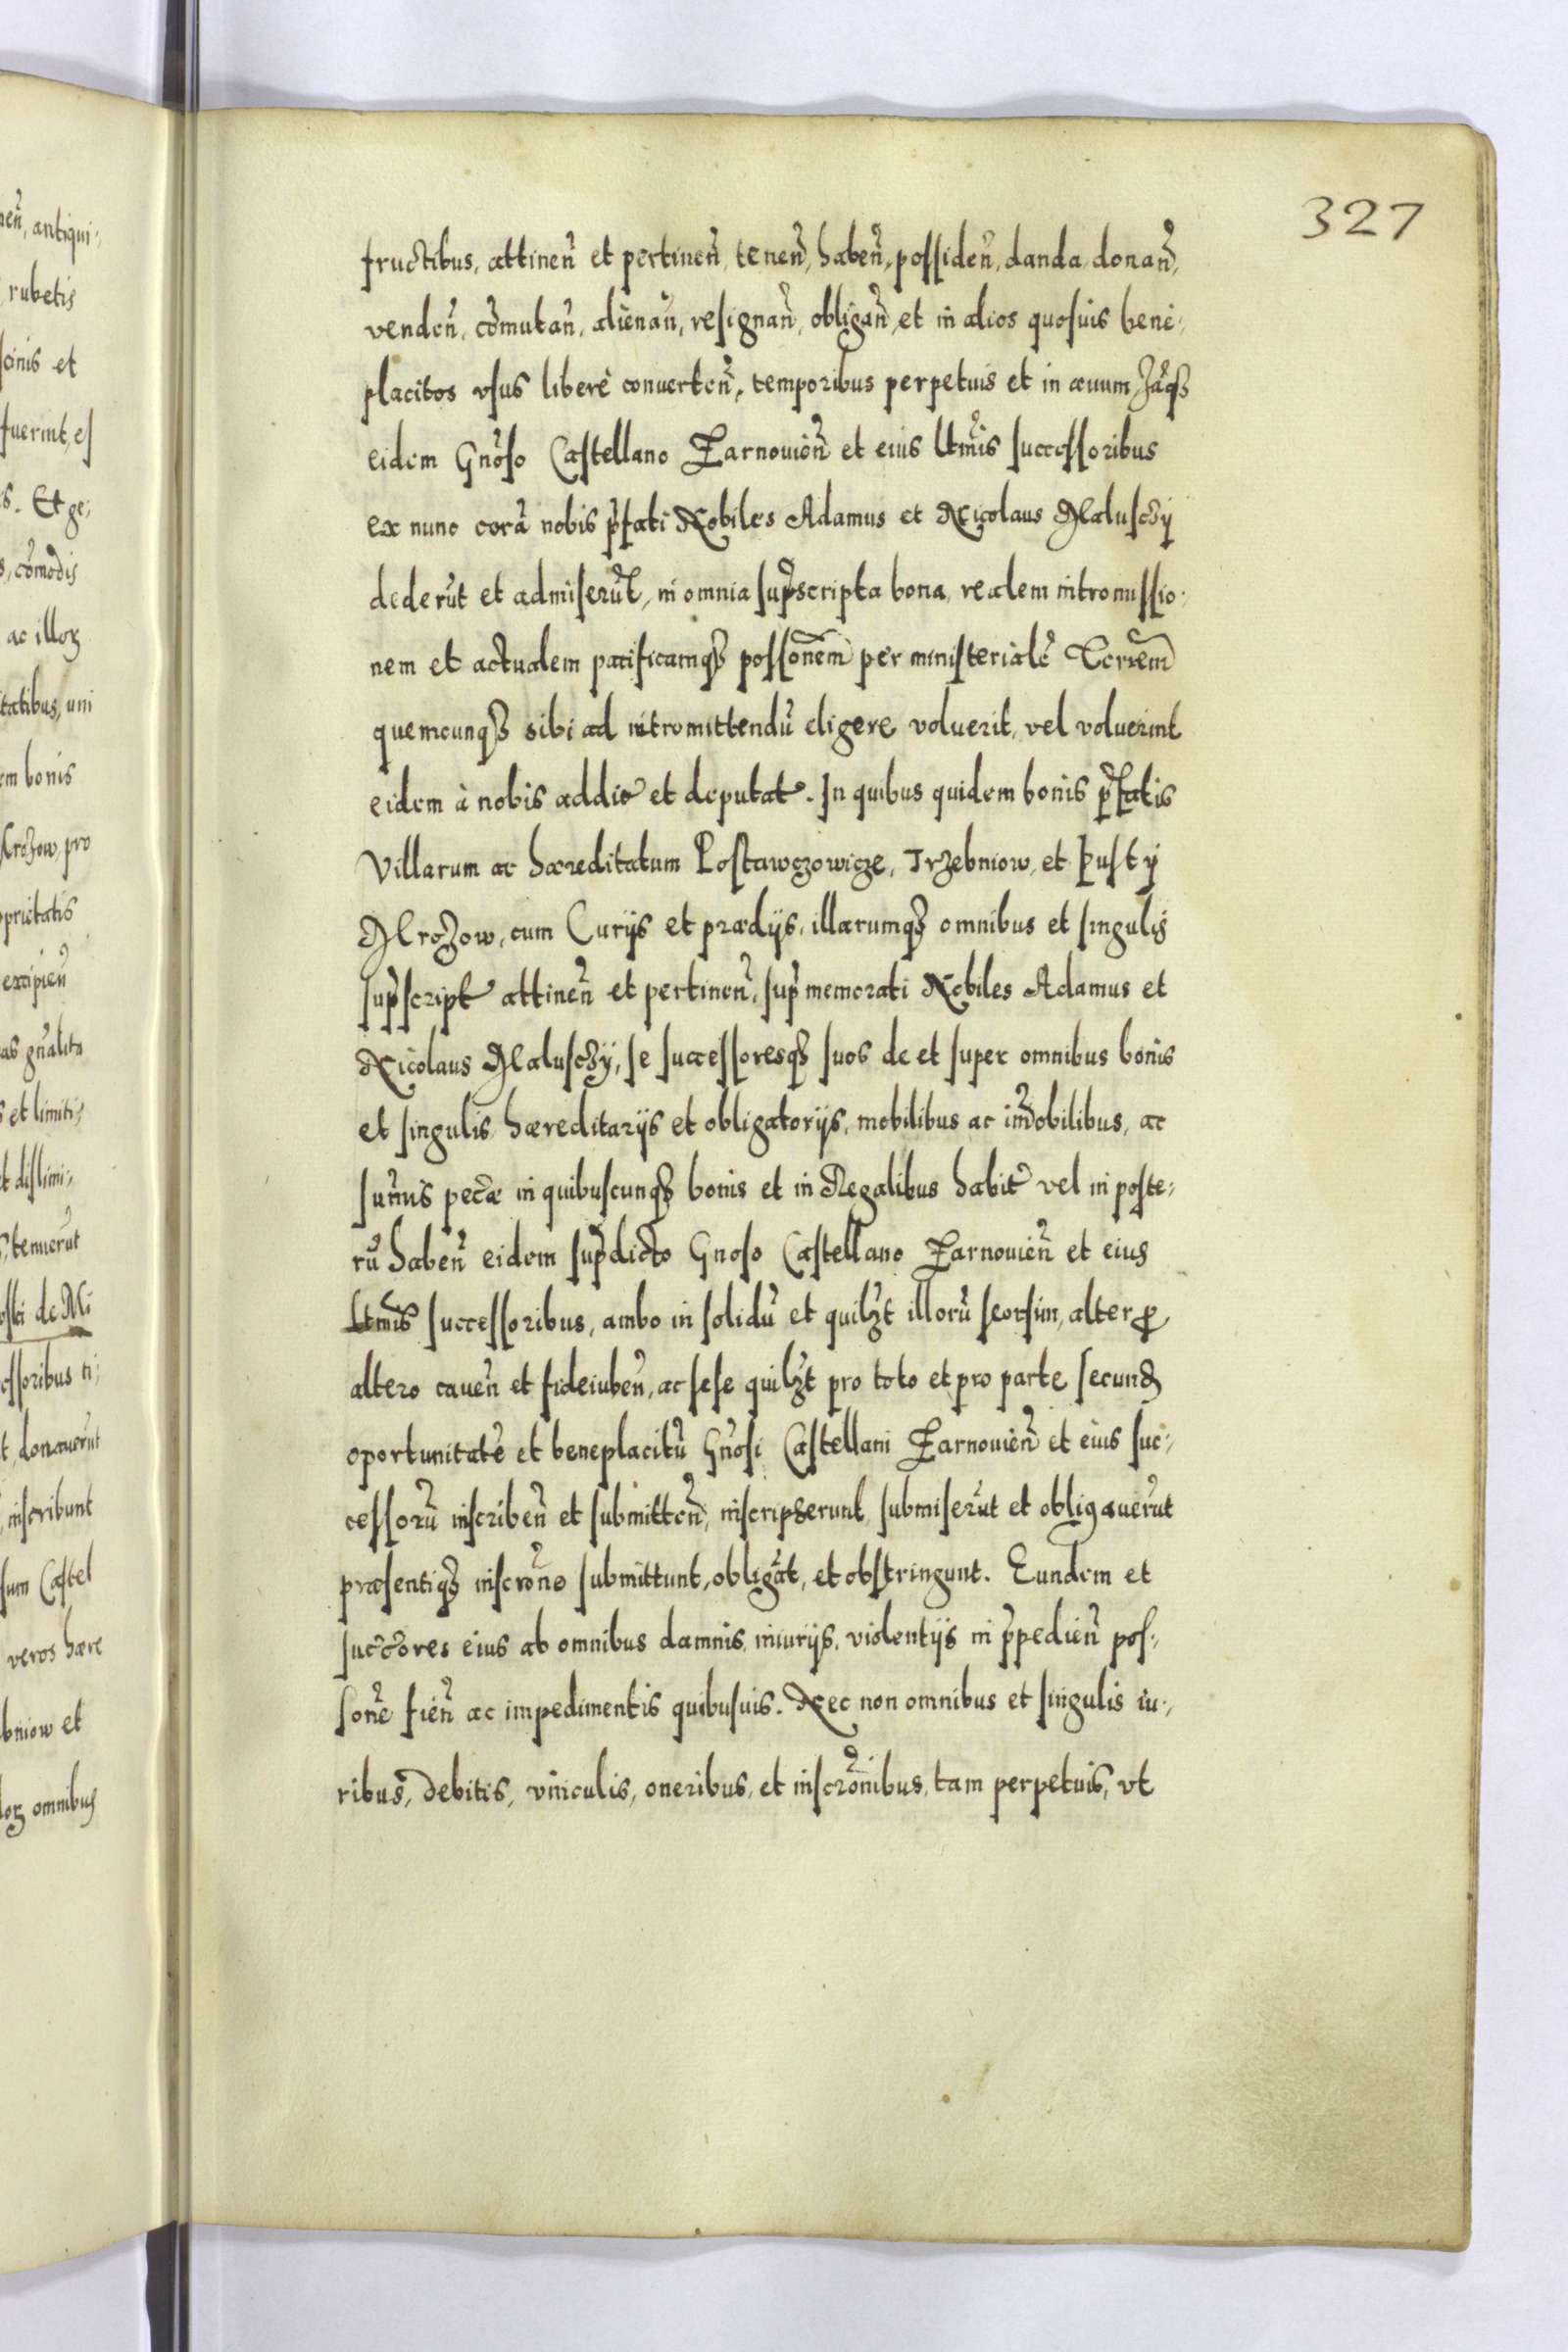 327
fructibus, attineñ et pertineñ, teneñ, habeñ, possideñ, danda, donañ,
vendeñ, com̃utañ, alienañ, resignañ, obligañ, et in alios quosuis bene-
placitos vsus liberè conuerteñ, temporibus perpetuis et in æuum, Jãqꝫ
eidem Gnoso Castellano Żarnouieñ et eius ltimis successoribus
ex nunc corã nobis p̃fati Nobiles Adamus et Nicolaus Maluschÿ
dederũt et admiserũt, in omnia sup̃scripta bona, realem intromissio-
nem et actualem pacificamqꝫ possonem per ministerialẽ Terrem
quemcunqꝫ sibi ad intromittendũ eligere voluerit, vel voluerint
eidem à nobis addit et deputat. In quibus quidem bonis p̃fatis
Villarum ac hæreditatum Postawczowicze, Trzebniow, et Pustÿ
Mrozow, cum Curijs et prædijs, illarumqꝫ omnibus et singulis
sup̃script attineñ et pertineñ, sup̃memorati Nobiles Adamus et
Nicolaus Maluschÿ, se successoresqꝫ suos de et super omnibus bonis
et singulis hæreditarijs et obligatorijs, mobilibus ac im̃obilibus, ac
sum̃is pecæ in quibuscunqꝫ bonis et in Regalibus habit vel in poste-
rũ habeñ eidem sup̃dicto Gnoso Castellano Żarnouieñ et eius
ltimis successoribus, ambo in solidũ et quilꝫt illorũ seorsim, alter ꝓ
altero caueñ et fideiubeñ, ac sese quilꝫt pro toto et pro parte secund
oportunitatẽ et beneplacitũ Gnosi Castellani Żarnouieñ et eius suc-
cessorũ inscribeñ et submitteñ, inscripserunt, submiserũt et obligauerũt
præsentiqꝫ inscrone submittunt, obligãt, et obstringunt. Eundem et
succores eius ab omnibus damnis, iniurijs, violentijs in p̃pedieñ pos-
sone fieñ ac impedimentis quibusuis. Nec non omnibus et singulis iu-
ribus, debitis, vinculis, oneribus, et inscronibus, tam perpetuis, vt